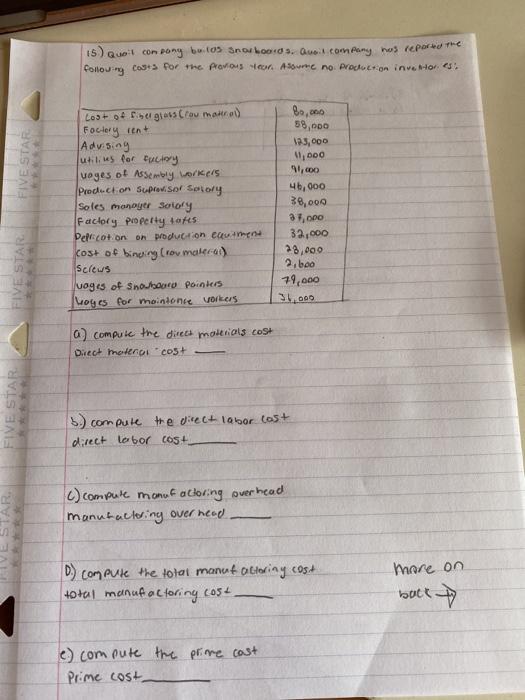 15.) Quail company builds Snowboards. Quail company has reported the
following costs for the previous year. Assume no production inventories:
Cost of fiberglass (raw material) 80,000
Factory rent 58,000
Advising 123,000
utilius for factory 11,000
wages of Assembly workers 91,000
Production Suprovisor Salary 46,000
Sales manager salary 38,000
Factory property taxes 37,000
Depricaton on production equitment 32,000
Cost of binding (raw material) 28,000
Screws 2,600
wages of Snowboard Painters 79,000
Wages for maintance workers
a) compute the direct materials cost
Direct material cost
b.) compute the direct labor cost
direct labor cost
C) compute manufactoring overhead
manufactering overhead
D.) compute the total manufactoring cost
total manufactoring cost
more on
back →
e) compute the prime cost
Prime cost
FIVE STAR
FIVE STAR
FIVE STAR
FIVE STAR